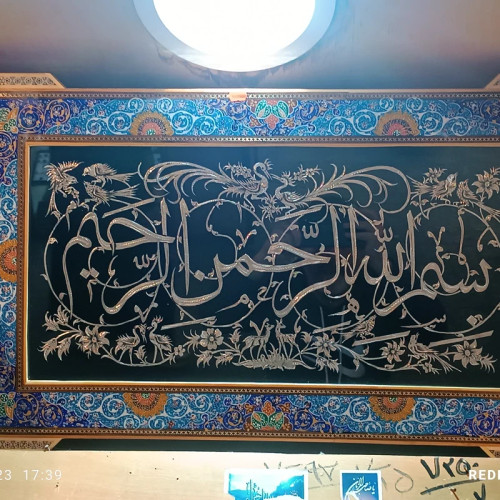 بسم الله الرحمن الرحیم
23 17:39
RED